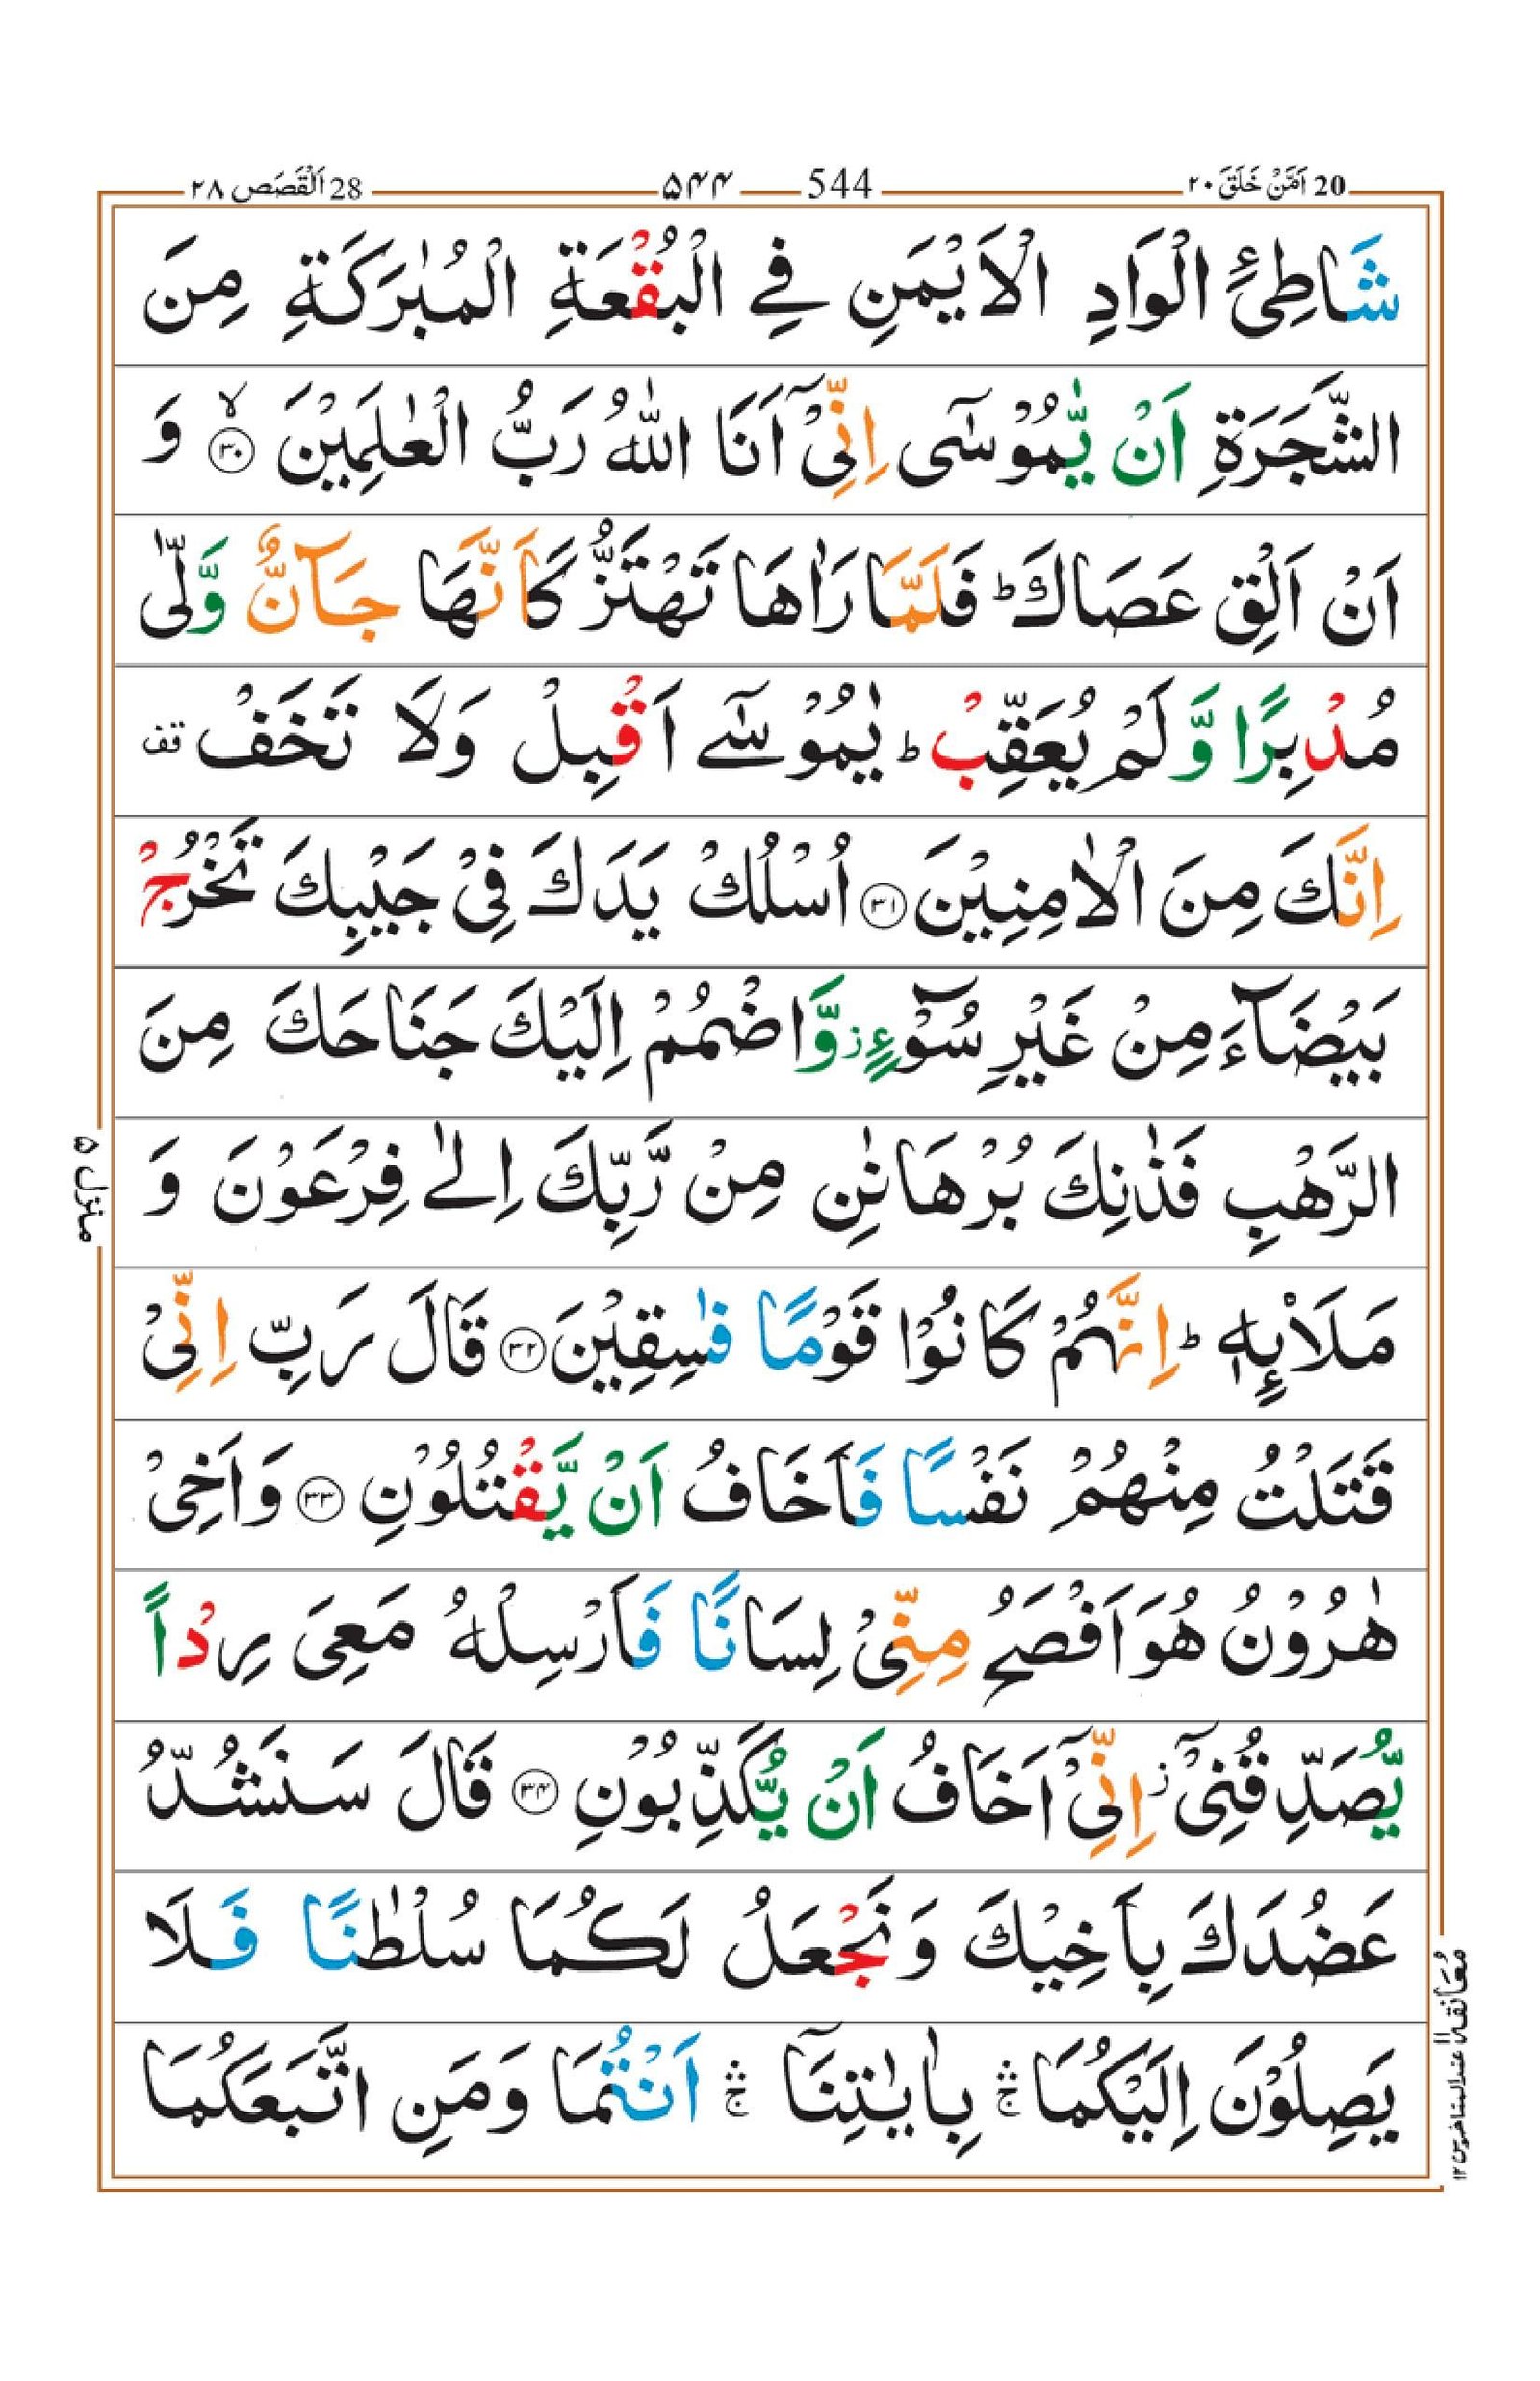 20 اَمَّنْ خَلَقَ ٢٠
544 ۵۴۴
28 اَلْقَصَص ٢٨
شَاطِئِ الْوَادِ الْاَيْمَنِ فِي الْبُقْعَةِ الْمُبٰرَكَةِ مِنَ
الشَّجَرَةِ اَنْ يّٰمُوْسٰٓى اِنِّيْٓ اَنَا اللّٰهُ رَبُّ الْعٰلَمِيْنَ ۙ‏﴿۳۰﴾ وَ
اَنْ اَلْقِ عَصَاكَ ؕ فَلَمَّا رَاٰهَا تَهْتَزُّ كَاَنَّهَا جَآنٌّ وَّلّٰى
مُدْبِرًا وَّلَمْ يُعَقِّبْ ؕ يٰمُوْسٰٓے اَقْبِلْ وَلَا تَخَفْ قف
اِنَّكَ مِنَ الْاٰمِنِيْنَ ﴿۳۱﴾ اُسْلُكْ يَدَكَ فِيْ جَيْبِكَ تَخْرُجْ
بَيْضَآءَ مِنْ غَيْرِ سُوْٓءٍ ز وَّاضْمُمْ اِلَيْكَ جَنَاحَكَ مِنَ
الرَّهْبِ فَذٰنِكَ بُرْهَانٰنِ مِنْ رَّبِّكَ اِلٰى فِرْعَوْنَ وَ
مَلَا۟ئِهٖ ؕ اِنَّهُمْ كَانُوْا قَوْمًا فٰسِقِيْنَ ﴿۳۲﴾ قَالَ رَبِّ اِنِّيْ
قَتَلْتُ مِنْهُمْ نَفْسًا فَاَخَافُ اَنْ يَّقْتُلُوْنِ ﴿۳۳﴾ وَاَخِيْ
هٰرُوْنُ هُوَ اَفْصَحُ مِنِّيْ لِسَانًا فَاَرْسِلْهُ مَعِيَ رِدْاً
يُّصَدِّقُنِيْٓ ز اِنِّيْٓ اَخَافُ اَنْ يُّكَذِّبُوْنِ ﴿۳۴﴾ قَالَ سَنَشُدُّ
عَضُدَكَ بِاَخِيْكَ وَنَجْعَلُ لَكُمَا سُلْطٰنًا فَلَا
يَصِلُوْنَ اِلَيْكُمَا ۛۚ بِاٰيٰتِنَآ ۛۚ اَنْتُمَا وَمَنِ اتَّبَعَكُمَا
منزل ۵
مُعَانَقَة ۱۱ عند المتاخرین ۱۲